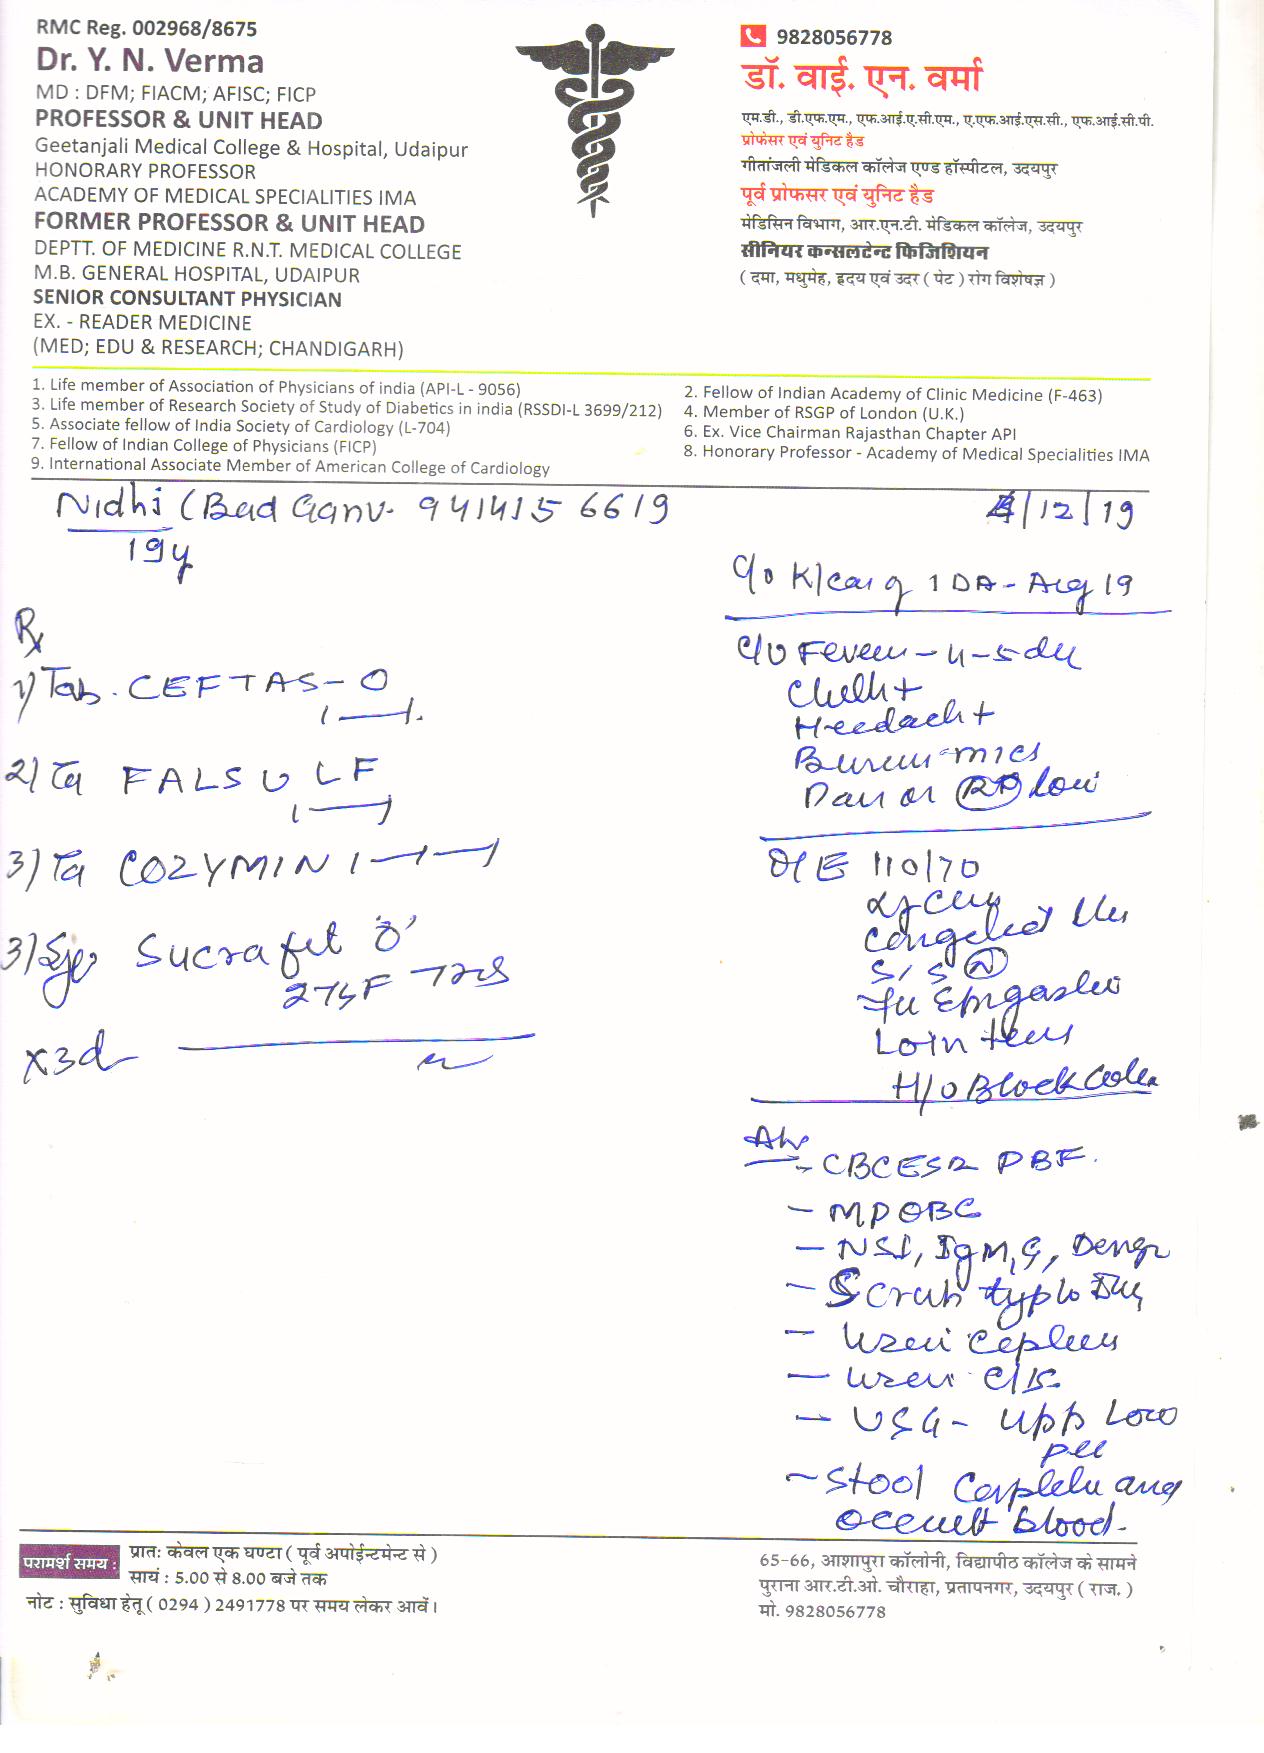 RMC Reg. 002968/8675
Dr. Y. N. Verma
MD : DFM; FIACM; AFISC; FICP
PROFESSOR & UNIT HEAD
Geetanjali Medical College & Hospital, Udaipur
HONORARY PROFESSOR
ACADEMY OF MEDICAL SPECIALITIES IMA
FORMER PROFESSOR & UNIT HEAD
DEPTT. OF MEDICINE R.N.T. MEDICAL COLLEGE
M.B. GENERAL HOSPITAL, UDAIPUR
SENIOR CONSULTANT PHYSICIAN
EX. - READER MEDICINE
(MED; EDU & RESEARCH; CHANDIGARH)
9828056778
डॉ. वाई. एन. वर्मा
एम.डी., डी.एफ.एम., एफ.आई.ए.सी.एम., ए.एफ.आई.एस.सी., एफ.आई.सी.पी.
प्रोफेसर एवं युनिट हैड
गीतांजली मेडिकल कॉलेज एण्ड हॉस्पीटल, उदयपुर
पूर्व प्रोफसर एवं युनिट हैड
मेडिसिन विभाग, आर.एन.टी. मेडिकल कॉलेज, उदयपुर
सीनियर कन्सलटेन्ट फिजिशियन
( दमा, मधुमेह, हृदय एवं उदर ( पेट ) रोग विशेषज्ञ )
1. Life member of Association of Physicians of india (API-L - 9056)
2. Fellow of Indian Academy of Clinic Medicine (F-463)
3. Life member of Research Society of Study of Diabetics in india (RSSDI-L 3699/212)
4. Member of RSGP of London (U.K.)
5. Associate fellow of India Society of Cardiology (L-704)
6. Ex. Vice Chairman Rajasthan Chapter API
7. Fellow of Indian College of Physicians (FICP)
8. Honorary Professor - Academy of Medical Specialities IMA
9. International Associate Member of American College of Cardiology
Nidhi (Bad Ganv- 9414156619
/12/19
19y
Rx
1) Tab. CEFTAS-O
2) Ta FALSULF
3) Ta COZYMIN 1
3) Syp Sucrafil 'O'
2 TSF
x3d
Aug 19
C/o Fever - 4-5d
Chill+
Headach+
Burning mics
O/E 110/70
S1S2 N
Loin
H/o Block
Adv
- CBC ESR PBF.
- MP QBC
- NS1, IgM, G, Dengu
- Scrub
- Urin
- Urin C/S
- USG - upp Low
- Stool
occult blood.
परामर्श समय :
प्रातः केवल एक घण्टा ( पूर्व अपोईन्टमेन्ट से )
सायं : 5.00 से 8.00 बजे तक
नोट : सुविधा हेतू ( 0294 ) 2491778 पर समय लेकर आवें।
65-66, आशापुरा कॉलोनी, विद्यापीठ कॉलेज के सामने
पुराना आर.टी.ओ. चौराहा, प्रतापनगर, उदयपुर ( राज. )
मो. 9828056778